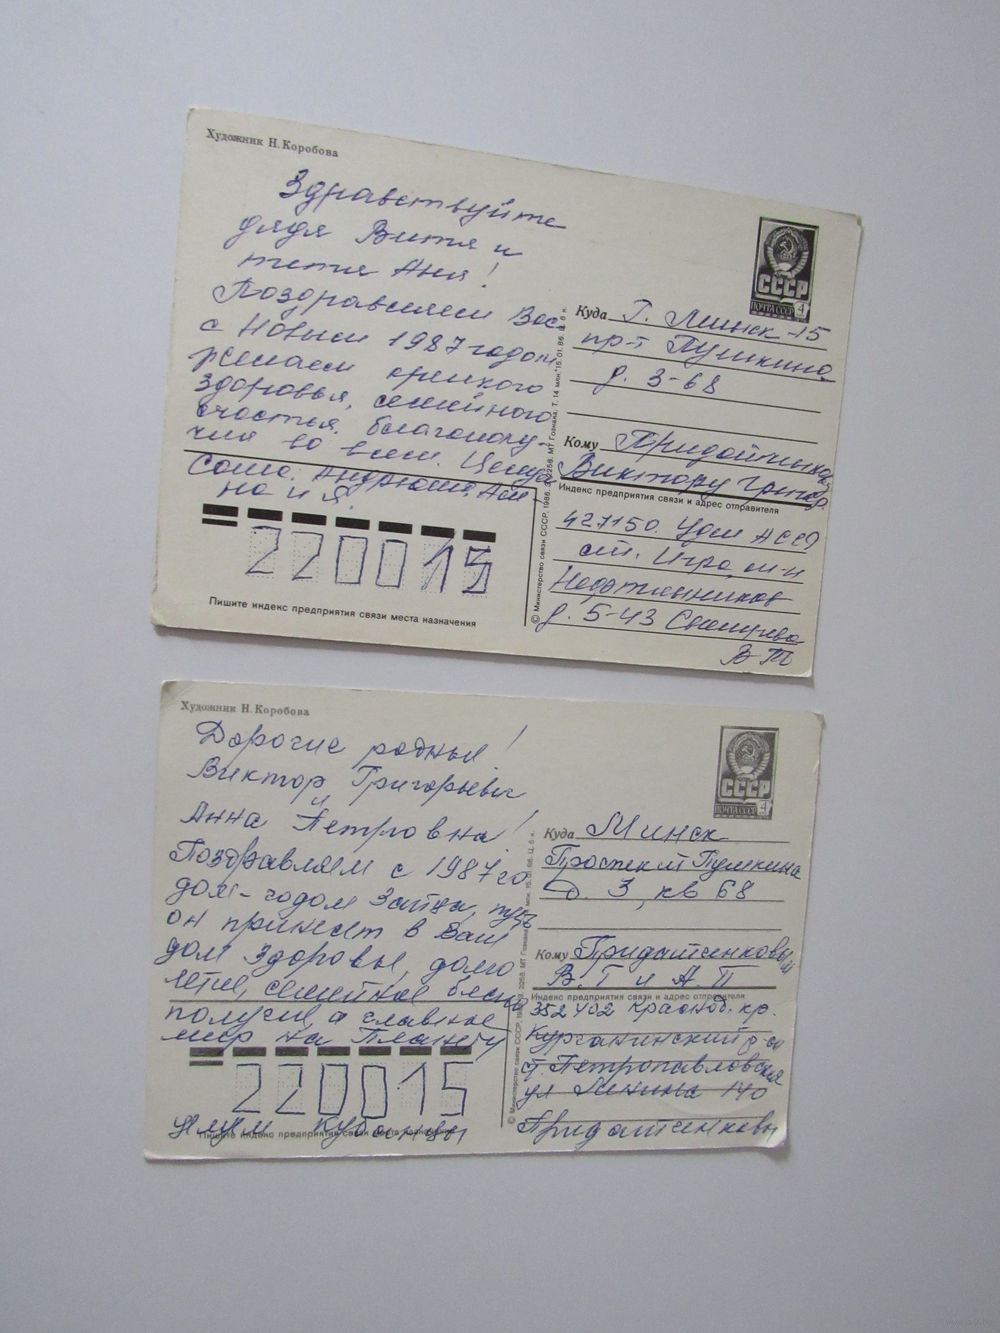 Художник Н. Коробова
Здравствуйте
дядя Витя и
тетя Аня!
Поздравляем Вас
с Новым 1987 годом
желаем крепкого
здоровья, семейного
счастья, благополу-
чия во всем. Целую
Саша, Андрюша, Али-
на и Я.
220015
Пишите индекс предприятия связи места назначения
СССР
ПОЧТА СССР 4
Куда Г. Минск-15
пр-т Пушкина
д. 3-68
Кому
Виктору Григор.
Индекс предприятия связи и адрес отправителя
427150. Удм АССР
ст. Игра, м-н
Нефтяников
д. 5-43
В Т
© Министерство связи СССР, 1986. З. 2258. МТ Гознака. Т. 14 мкн. 15.01.86. Ц. 6 к.
Художник Н. Коробова
Дорогие родные!
Виктор Григорьевич
и
Анна Петровна!
Поздравляем с 1987 го
дом-годом Зайца, пусть
он принесет в Ваш
дом здоровье, долго
летие, семейное благо
получие, а главное
мир на Планету
220015
Пишите индекс предприятия связи места назначения
целуем кубанцы
СССР
ПОЧТА СССР 4
Куда Минск
Проспект Пушкина
д. 3, кв 68
Кому Придатченковым
В. Г и А. П
Индекс предприятия связи и адрес отправителя
352402 Краснод. кр.
Курганинский р-он
ст. Петропавловская
ул Ленина 140
Придатченковы
© Министерство связи СССР, 1986. З. 2258. МТ Гознака. 15.01.86. Ц. 6 к.